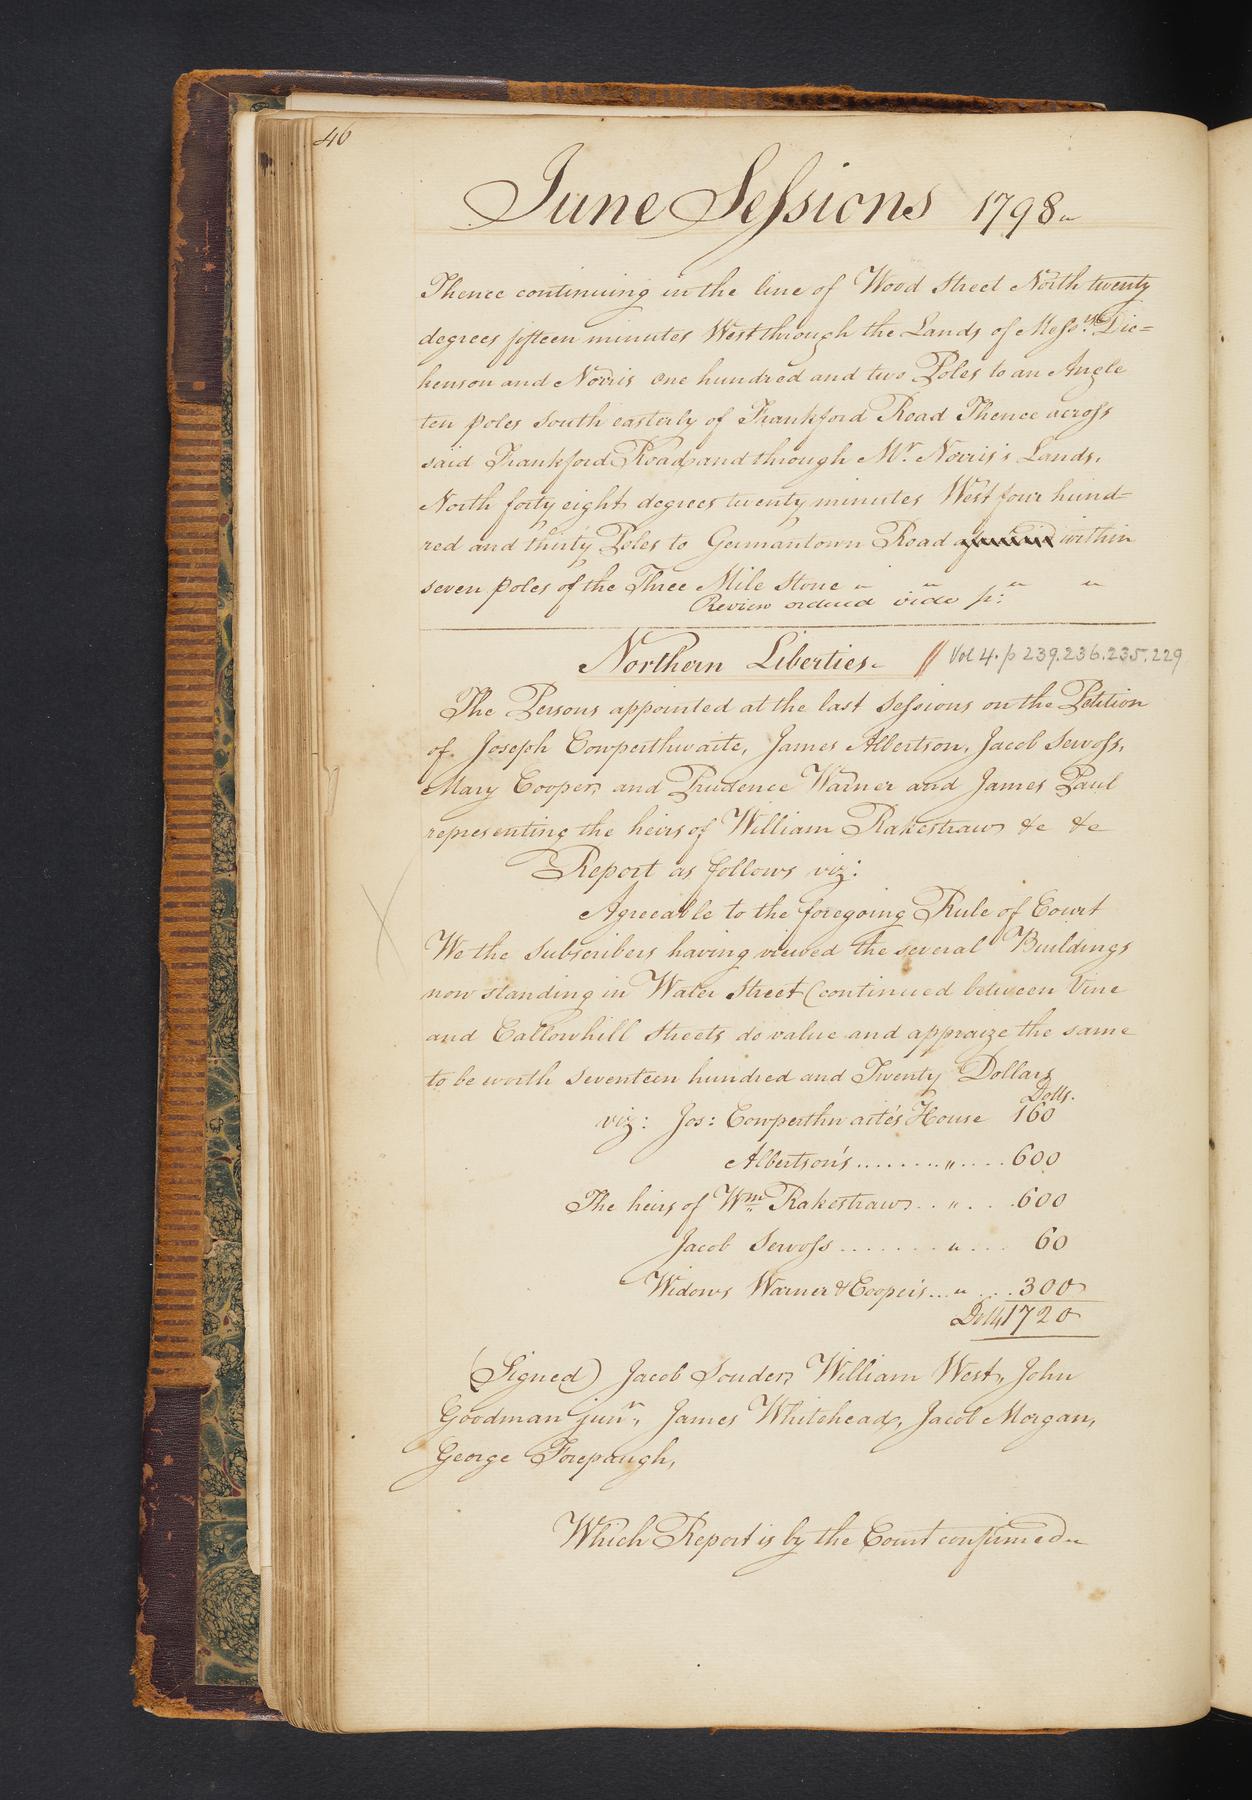 46
June Sessions 1798
Thence continuing in the line of Wood Street North twenty
degrees fifteen minutes West through the Lands of Mess.rs Dic=
kenson and Norris one hundred and two Poles to an Angle
ten poles South easterly of Frankford Road Thence across
said Frankford Road and through Mr. Norris's Lands,
North forty eight degrees twenty minutes West four hund=
red and thirty Poles to Germantown Road within
seven poles of the Three Mile Stone " " " "
Review ordered vide p:
Northern Liberties // Vol 4. p 239.236.235.229
The Persons appointed at the last Sessions on the Petition
of Joseph Cowperthwaite, James Albertson, Jacob Servoss,
Mary Cooper, and Prudence Warner and James Paul
representing the heirs of William Rakestraw &c &c
Report as follows viz:
Agreeable to the foregoing Rule of Court
We the Subscribers having viewed the several Buildings
now standing in Water Street (continued between Vine
and Callowhill Streets do value and appraize the same
to be worth Seventeen hundred and Twenty Dollars
Dolls.
viz: Jos: Cowperthwaite's House 160
Albertson's ........ " .... 600
The heirs of Wm Rakestraw .. " ... 600
Jacob Servoss ....... " ... 60
Widows Warner & Cooper's ... " ... 300
Dolls 1720
(Signed) Jacob Souder, William West, John
Goodman junr, James Whitehead, Jacob Morgan,
George Forepaugh,
Which Report is by the Court confirmed